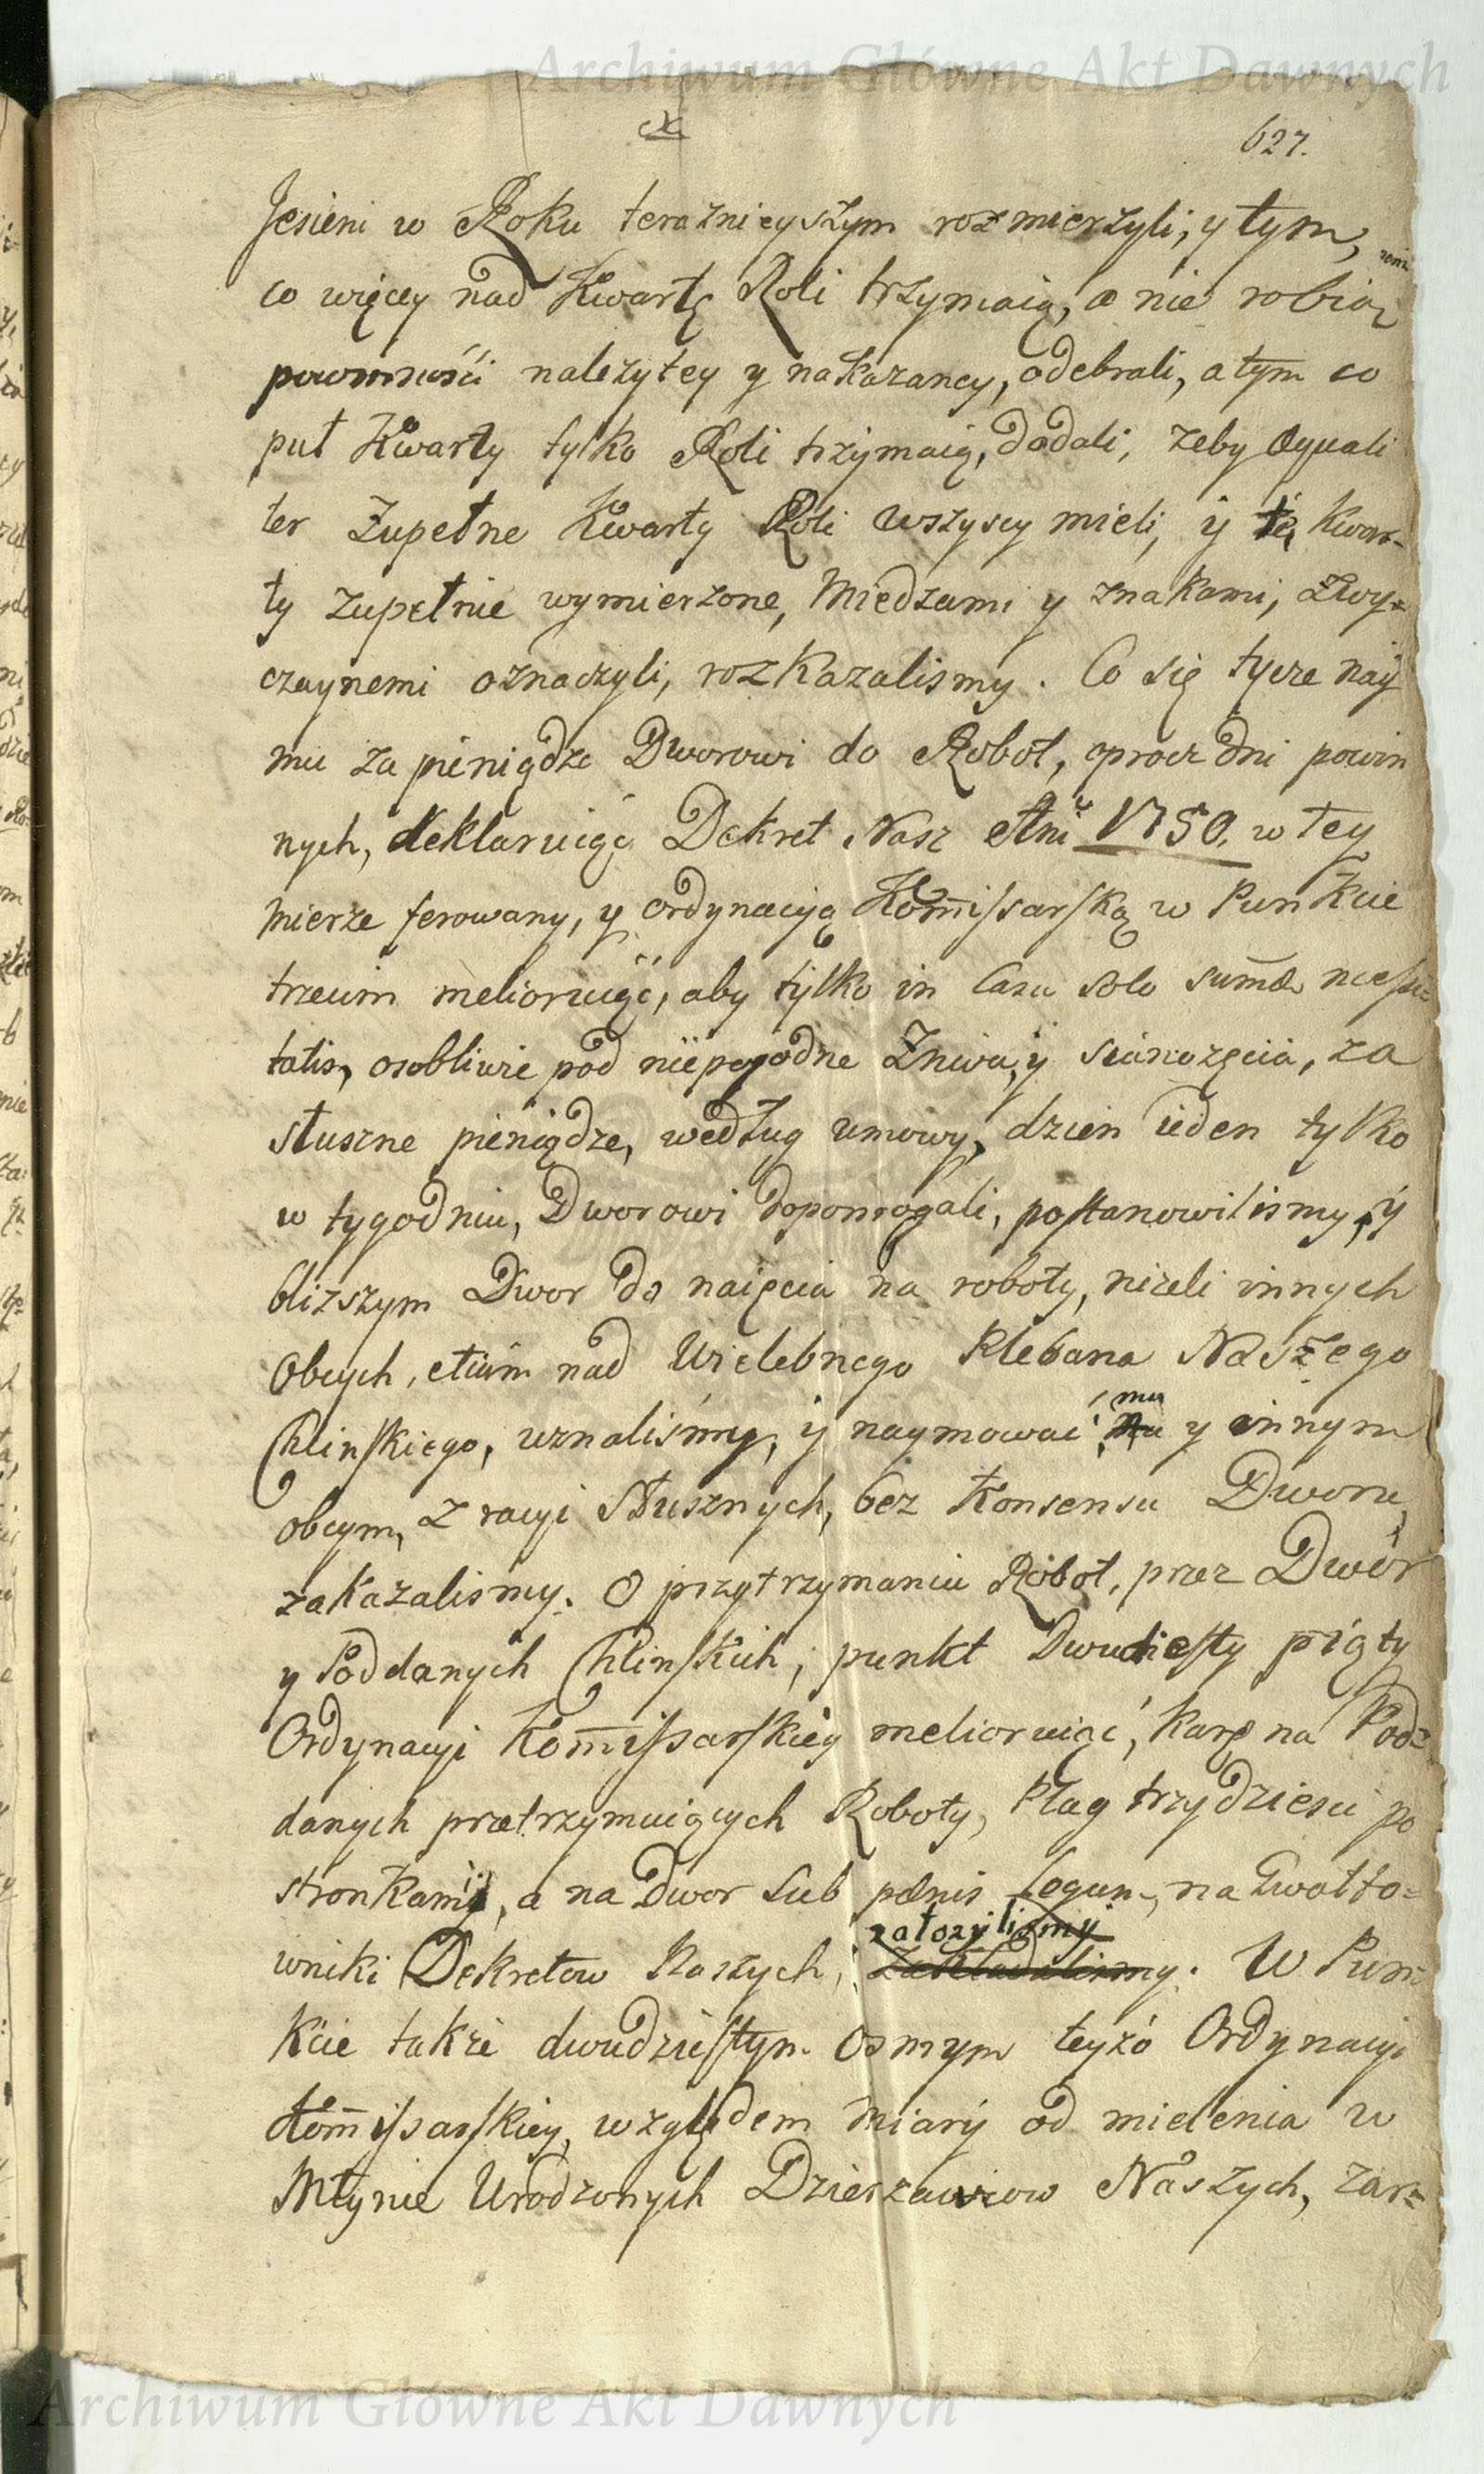 Archiwum Główne Akt Dawnych
X
627.
Jesieni w Roku teraznieyszym rozmierzyli, y tym,
co więcey nad Kwartę Roli trzymaią, a nie robią
powinnośći nalezytey y nakazaney, odebrali, a tym co
puł Kwarty tylko Roli trzymaią, dodali, zeby Equali
ter Zupełne Kwarty Roli wszyscy mieli, y te Kwar=
ty zupełnie wymierzone, Miedzami y znakami, zwy=
czaynemi oznaczyli, rozkazalismy. Co się tycze nay
mu za pieniądze Dworowi do Robot, oprocz dni powin
nych, deklaruiąc Dekret Nasz Ani 1750. w tey
mierze ferowany, y ordynacyą Kom̃issarską w Punkcie
trzecim melioruiąć, aby tylko in Casu solo sum̃æ necessi=
tatis, osobliwie pod niepogodne Zniwa, y sianozęcia, za
słuszne pieniądze, według umowy, dzien ieden tylko
w tygodniu, Dworowi dopomogali, postanowilismy, y
blizszym Dwor do naięcia na roboty, nizeli innych
Obcych, etiam nad Wielebnego Plebana Naszego
Chlinskiego, uznaliśmy, y naymować mu y innym
obcym, z racyi słusznych, bez Konsensu Dworu,
zakazalismy. O przytrzymaniu Robot, przez Dwór
y Poddanych Chlinskich, punkt Dwudziesty piąty
Ordynacyi Kom̃issarskiey melioruiąć, karę na Pod=
danych przetrzymuiących Roboty, Plag trzydziesci po
stronkami, a na Dwor sub pœnis legum, na Gwałto=
załozylismy
wniki Dekretow Naszych, zakładalismy. W Pun
kcie takze dwudziestym osmym teyzo Ordynacyi
Kom̃issarskiey, względem miary od mielenia w
Młynie Urodzonych Dzierzawcow Naszych, zar=
Archiwum Główne Akt Dawnych